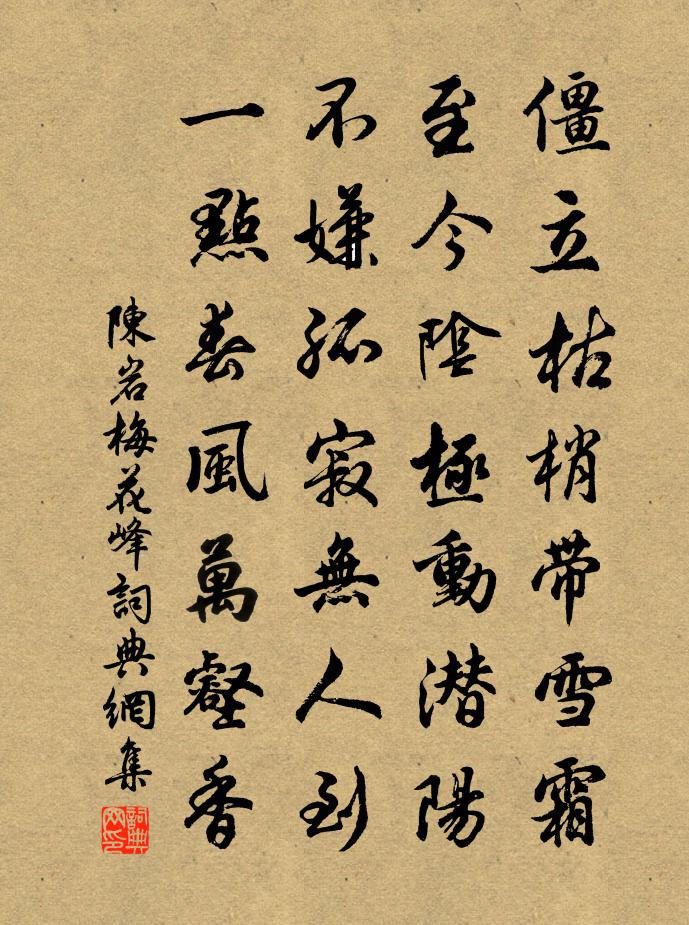 僵立枯梢帶雪霜
至今陰極動潛陽
不嫌孤寂無人到
一點春風萬壑香
陳岩梅花峰詞典網集
詞典网印